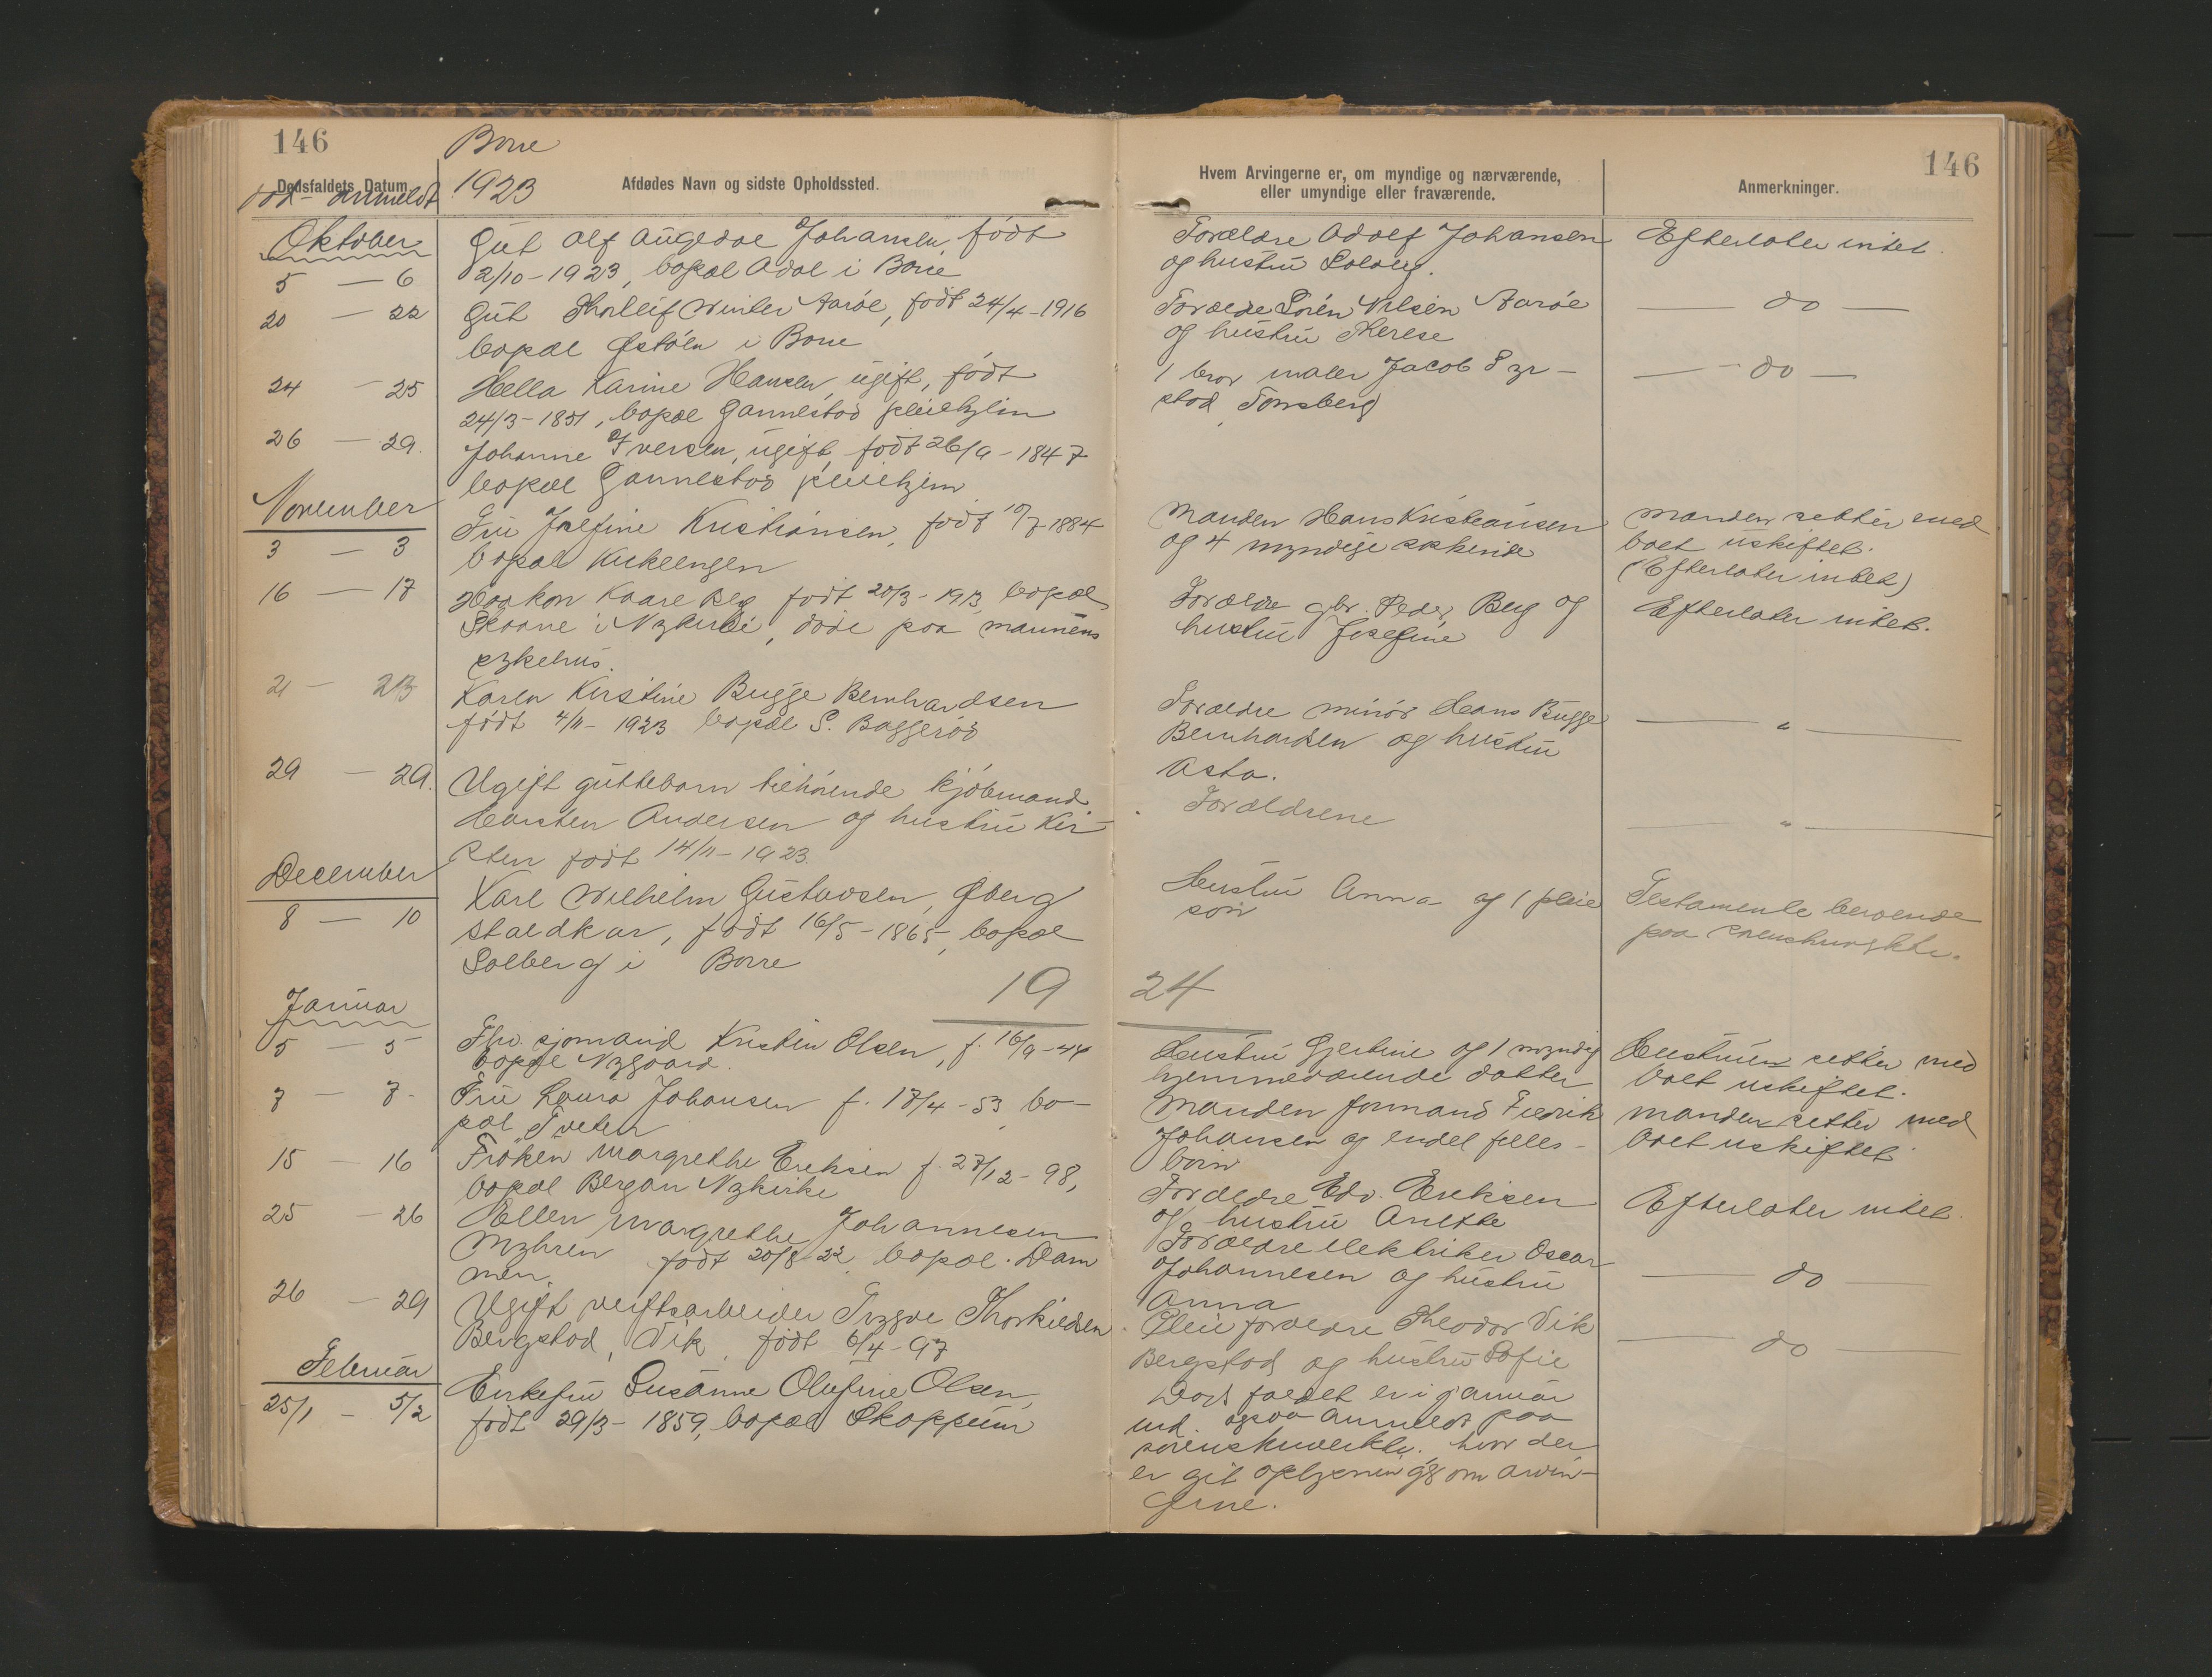 146
Borre
Dødsfaldets Datum.
død - anmeldt
1923
Afdødes Navn og sidste Opholdssted.
Oktober
5 — 6
Gut Alf Augedal Johansen, født
2/10-1923, bopæl Adal i Borre
20 — 22
Gut Thorleif Winter Aarøe, født 24/4-1916
bopæl Østøen i Borre
24 — 25
Hella Karine Hansen, ugift, født
24/3-1851, bopæl Gannestad pleiehjem
26 — 29.
Johanne Iversen, ugift, født 26/9-1847
bopæl Gannestad pleiehjem
November
3 — 3
Fru Josefine Kristiansen, født 10/7-1884
bopæl Kirkeengen
16 — 17
Haakon Kaare Berg født 20/3-1913, bopæl
Skaane i Nykirke, døde paa marinens
sykehus.
21 — 23
Karen Kirstine Bugge Bernhardsen
født 4/11-1923 bopæl S. Baggerød
29 — 29.
Ugift guttebarn tilhørende kjøbmand
Karsten Andersen og hustru Kir-
sten født 14/11-1923.
December
8 — 10
Karl Wilhelm Gustavsen, Øberg
staldkar, født 16/5-1865, bopæl
Solberg i Borre
19
Januar
5 — 5
Fhv. sjømand Kristen Olsen, f. 16/9-44
bopæl Nygaard.
7 — 7.
Fru Laura Johansen f. 17/4-53 bo-
pæl Tveten
15 — 16
Frøken Margrethe Eriksen f. 27/12-98,
bopæl Bergan Nykirke
25 — 26
Ellen Margrethe Johannesen
Myhren født 20/8-22 bopæl. Dam
men.
26 — 29
Ugift verftsarbeider Trygve Thorkildsen
Bergstad, Vik, født 6/4-97
Februar
25/1 - 5/2
Enkefru Susanne Olufine Olsen,
født 29/3-1859, bopæl Skoppum
146
Hvem Arvingerne er, om myndige og nærværende,
eller umyndige eller fraværende.
Anmerkninger.
Forældre Adolf Johansen
og hustru Solveig.
Efterlater intet.
Forældre Søren Nilsen Aarøe
og hustru Therese
— do —
1 bror maler Jacob Syr-
stad, Tønsberg
— do —
Manden Hans Kristiansen
og 4 myndige søskende
Manden sitter med
boet uskiftet.
(Efterlater intet)
Forældre gbr. Peder Berg og
hustru Josefine
Efterlater intet.
Forældre minør Hans Bugge
Bernhardsen og hustru
Asta.
— " —
Forældrene
— " —
Hustru Anna og 1 pleie
søn
Testamente beroende
paa sorenskrivrktr.
24
Hustru Gjertine og 1 myndig
hjemmeværende datter
Hustruen sitter med
boet uskiftet.
Manden formand Fredrik
Johansen og endel felles-
børn
Manden sitter med
boet uskiftet
Forældre Edv. Eriksen
og hustru Anette
Efterlater intet.
Forældre elektriker Oscar
Johannesen og hustru
Anna
— do —
Pleieforældre Theodor Vik
Bergstad og hustru Sofie
— do —
Dødsfaldet er i januar
md. ogsaa anmeldt paa
sorenskriverktr. hvor der
er git oplysning om arvin-
gerne.